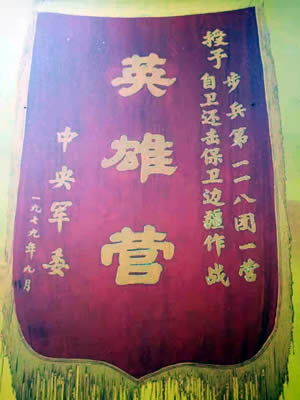 授予
步兵第一一八团一营
自卫还击保卫边疆作战
英雄营
中央军委
一九七九年九月